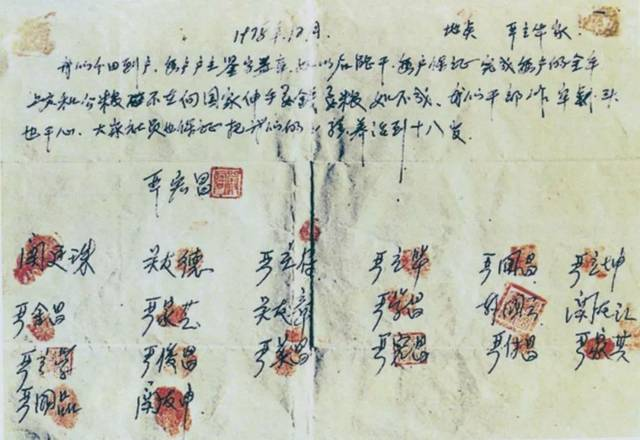 1978年12月. 地点 严立华家
我们分田到户,每户户主签字盖章,如以后能干,每户保证完成每户的全年
上交和公粮,不在向国家伸手要钱要粮,如不成,我们干部作牢刹头
也干心,大家社员也保证把我们的小孩养活到十八岁。
严宏昌
关廷珠 关友德 严立符 严立华 严国昌 严立坤
严金昌 严家芝 关友章 严学昌 韩国云 关友江
严立学 严俊昌 严美昌 严宏昌 严付昌 严家其
严国品 关友申